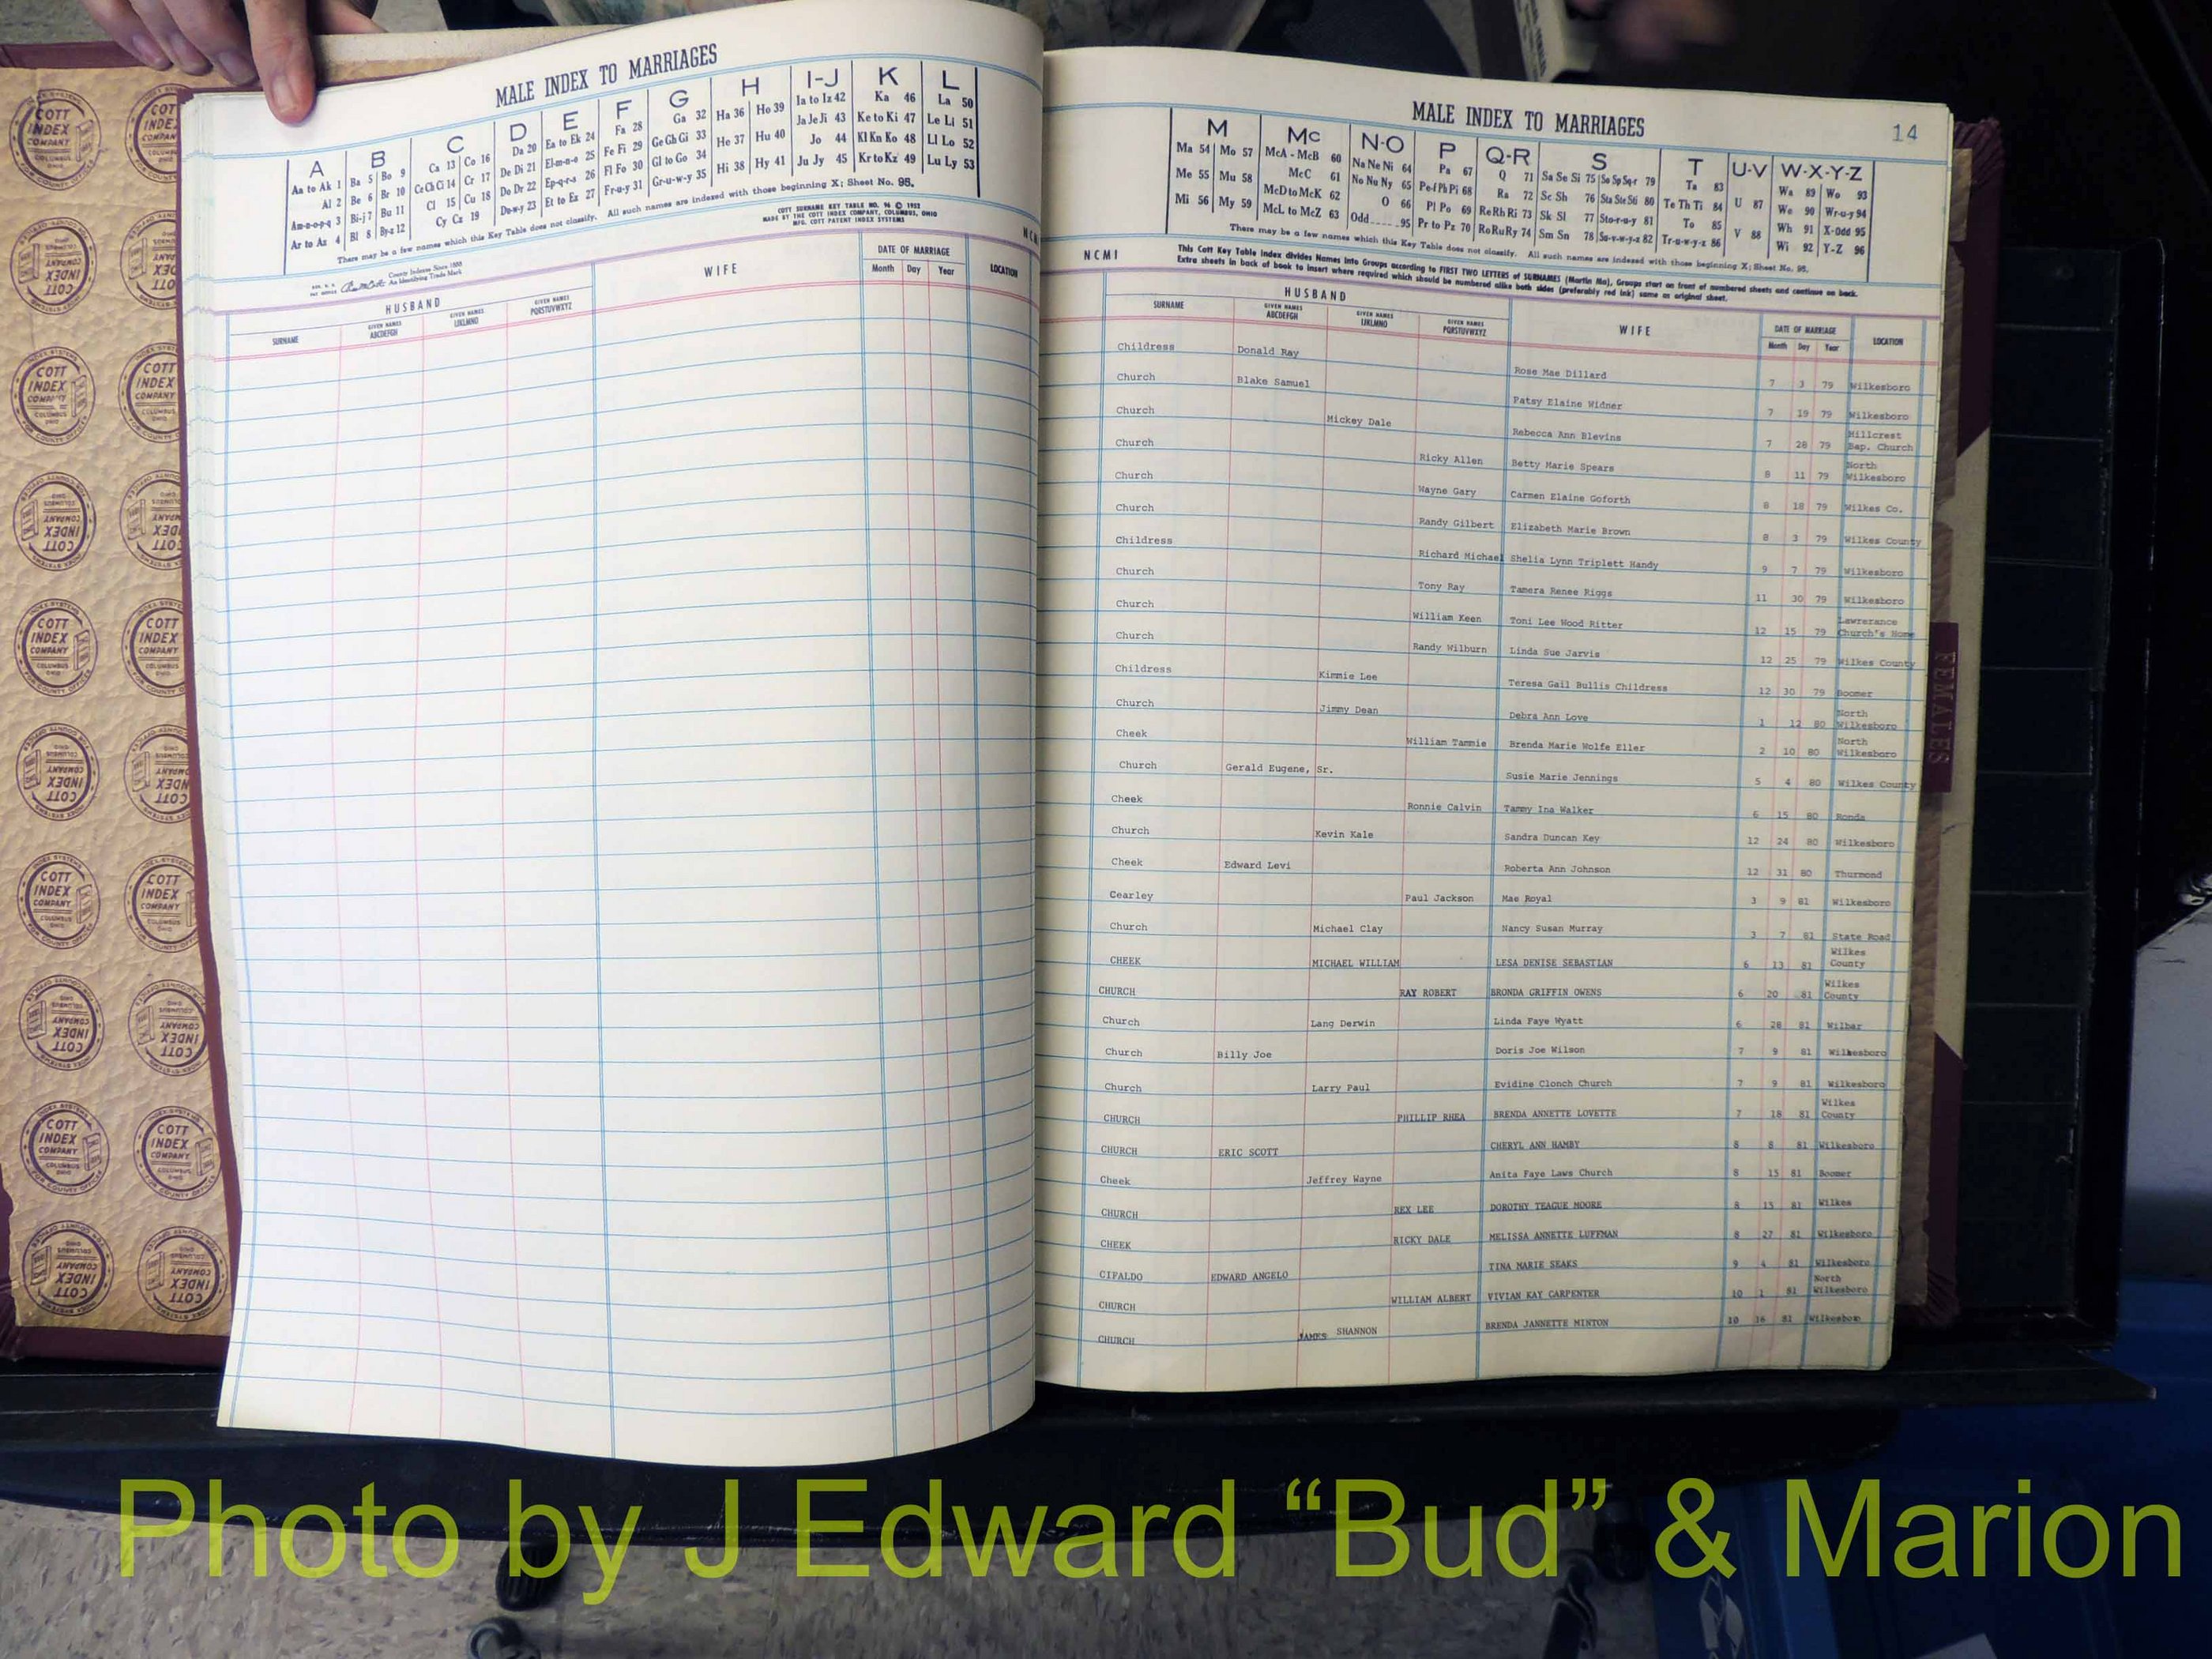 MALE INDEX TO MARRIAGES
A B C D E F G H I-J K L
Aa to Ak 1 Ba 5 Bo 9 Ca 13 Co 16 Da 20 Ea to Ek 24 Fa 28 Ga 32 Ha 36 Ho 39 Ia to Iz 42 Ka 46 La 50
Al 2 Be 6 Br 10 Ce Ch Ci 14 Cr 17 De Di 21 El-m-n-o 25 Fe Fi 29 Ge Gh Gi 33 He 37 Hu 40 Ja Je Ji 43 Ke to Ki 47 Le Li 51
Am-n-o-p-q 3 Bi-j 7 Bu 11 Cl 15 Cu 18 Do Dr 22 Ep-q-r-s 26 Fl Fo 30 Gl to Go 34 Hi 38 Hy 41 Jo 44 Kl Kn Ko 48 Ll Lo 52
Ar to Az 4 Bl 8 By-z 12 Cy Cz 19 Du-w-y 23 Et to Ez 27 Fr-u-y 31 Gr-u-w-y 35 Ju Jy 45 Kr to Kz 49 Lu Ly 53
There may be a few names which this Key Table does not classify. All such names are indexed with those beginning X; Sheet No. 95.
County Indexes Since 1888
An Identifying Trade Mark
COTT SURNAME KEY TABLE NO. 96 © 1952
MADE BY THE COTT INDEX COMPANY, COLUMBUS, OHIO
MFG. COTT PATENT INDEX SYSTEMS
HUSBAND WIFE DATE OF MARRIAGE LOCATION
SURNAME GIVEN NAMES ABCDEFGH GIVEN NAMES IJKLMNO GIVEN NAMES PQRSTUVWXYZ Month Day Year
MALE INDEX TO MARRIAGES 14
M Mc N-O P Q-R S T U-V W-X-Y-Z
Ma 54 Mo 57 McA - McB 60 Na Ne Ni 64 Pa 67 Q 71 Sa Se Si 75 So Sp Sq-r 79 Ta 83 U 87 Wa 89 Wo 93
Me 55 Mu 58 McC 61 No Nu Ny 65 Pe-f Ph Pi 68 Ra 72 Sc Sh 76 Sta Ste Sti 80 Te Th Ti 84 V 88 We 90 Wr-u-y 94
Mi 56 My 59 McD to McK 62 O 66 Pl Po 69 Re Rh Ri 73 Sk Sl 77 Sto-r-u-y 81 To 85 Wh 91 X-Odd 95
McL to McZ 63 Odd 95 Pr to Pz 70 Ro Ru Ry 74 Sm Sn 78 Su-v-w-y-z 82 Tr-u-w-y-z 86 Wi 92 Y-Z 96
There may be a few names which this Key Table does not classify. All such names are indexed with those beginning X; Sheet No. 95.
NCMI
This Cott Key Table Index divides Names into Groups according to FIRST TWO LETTERS of SURNAMES (Martin Ma), Groups start on front of numbered sheets and continue on back.
Extra sheets in back of book to insert where required which should be numbered alike both sides (preferably red ink) same as original sheet.
HUSBAND WIFE DATE OF MARRIAGE LOCATION
SURNAME GIVEN NAMES ABCDEFGH GIVEN NAMES IJKLMNO GIVEN NAMES PQRSTUVWXYZ Month Day Year
Childress Donald Ray Rose Mae Dillard 7 3 79 Wilkesboro
Church Blake Samuel Patsy Elaine Widner 7 19 79 Wilkesboro
Church Mickey Dale Rebecca Ann Blevins 7 28 79 Hillcrest Bap. Church
Church Ricky Allen Betty Marie Spears 8 11 79 North Wilkesboro
Church Wayne Gary Carmen Elaine Goforth 8 18 79 Wilkes Co.
Church Randy Gilbert Elizabeth Marie Brown 8 3 79 Wilkes County
Childress Richard Michael Shelia Lynn Triplett Handy 9 7 79 Wilkesboro
Church Tony Ray Tamera Renee Riggs 11 30 79 Wilkesboro
Church William Keen Toni Lee Wood Ritter 12 15 79 Lawrerance Church's Home
Church Randy Wilburn Linda Sue Jarvis 12 25 79 Wilkes County
Childress Kimmie Lee Teresa Gail Bullis Childress 12 30 79 Boomer
Church Jimmy Dean Debra Ann Love 1 12 80 North Wilkesboro
Cheek William Tammie Brenda Marie Wolfe Eller 2 10 80 North Wilkesboro
Church Gerald Eugene, Sr. Susie Marie Jennings 5 4 80 Wilkes County
Cheek Ronnie Calvin Tammy Ina Walker 6 15 80 Ronda
Church Kevin Kale Sandra Duncan Key 12 24 80 Wilkesboro
Cheek Edward Levi Roberta Ann Johnson 12 31 80 Thurmond
Cearley Paul Jackson Mae Royal 3 9 81 Wilkesboro
Church Michael Clay Nancy Susan Murray 3 7 81 State Road
CHEEK MICHAEL WILLIAM LESA DENISE SEBASTIAN 6 13 81 Wilkes County
CHURCH RAY ROBERT BRONDA GRIFFIN OWENS 6 20 81 Wilkes County
Church Lang Derwin Linda Faye Wyatt 6 28 81 Wilbar
Church Billy Joe Doris Joe Wilson 7 9 81 Wilkesboro
Church Larry Paul Evidine Clonch Church 7 9 81 Wilkesboro
CHURCH PHILLIP RHEA BRENDA ANNETTE LOVETTE 7 18 81 Wilkes County
CHURCH ERIC SCOTT CHERYL ANN HAMBY 8 8 81 Wilkesboro
Cheek Jeffrey Wayne Anita Faye Laws Church 8 15 81 Boomer
CHURCH REX LEE DOROTHY TEAGUE MOORE 8 15 81 Wilkes
CHEEK RICKY DALE MELISSA ANNETTE LUFFMAN 8 27 81 Wilkesboro
CIPALDO EDWARD ANGELO TINA MARIE SEAKS 9 4 81 Wilkesboro
CHURCH WILLIAM ALBERT VIVIAN KAY CARPENTER 10 1 81 North Wilkesboro
CHURCH JAMES SHANNON BRENDA JANNETTE MINTON 10 16 81 Wilkesboro
FEMALES
COTT INDEX COMPANY COLUMBUS OHIO
Photo by J Edward “Bud” & Marion